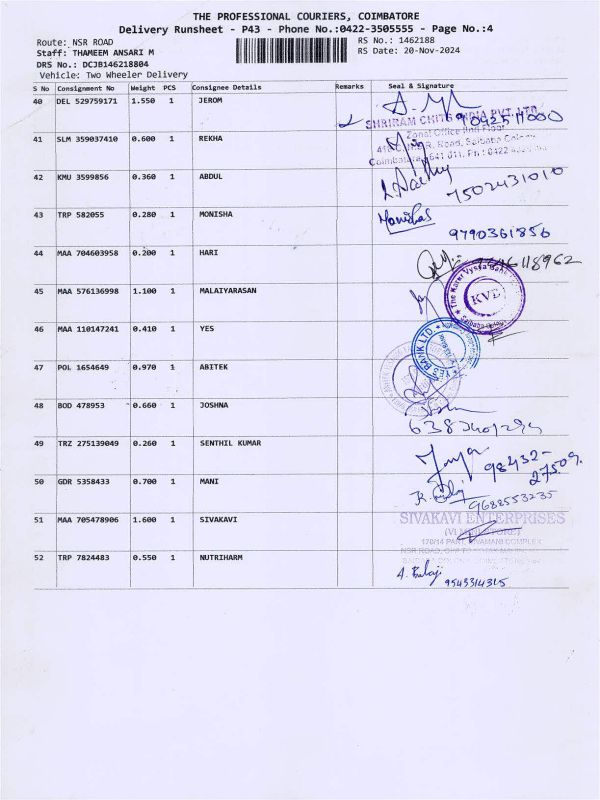 THE PROFESSIONAL COURIERS, COIMBATORE
Delivery Runsheet - P43 - Phone No.:0422-3505555 - Page No.:4
Route: NSR ROAD RS No.: 1462188
Staff: THAMEEM ANSARI M RS Date: 20-Nov-2024
DRS No.: DCJB146218804
Vehicle: Two Wheeler Delivery
S No Consignment No Weight PCS Consignee Details Remarks Seal & Signature
40 DEL 529759171 1.550 1 JEROM
SHRIRAM CHITS INDIA PVT. LTD.
Zonal Office IInd Floor
41 SLM 359037410 0.600 1 REKHA
42 KMU 3599856 0.360 1 ABDUL 7502431010
43 TRP 582055 0.280 1 MONISHA Monishas
9790361856
44 MAA 704603958 0.200 1 HARI
The Karur Vysya Bank
KVB
45 MAA 576136998 1.100 1 MALAIYARASAN
46 MAA 110147241 0.410 1 YES
YES BANK LTD
47 POL 1654649 0.970 1 ABITEK
48 BOD 478953 0.660 1 JOSHNA
49 TRZ 275139049 0.260 1 SENTHIL KUMAR 98432-
27509
50 GDR 5358433 0.700 1 MANI
9688553235
51 MAA 705478906 1.600 1 SIVAKAVI SIVAKAVI ENTERPRISES
52 TRP 7824483 0.550 1 NUTRIHARM
A. Balaji 9543314315